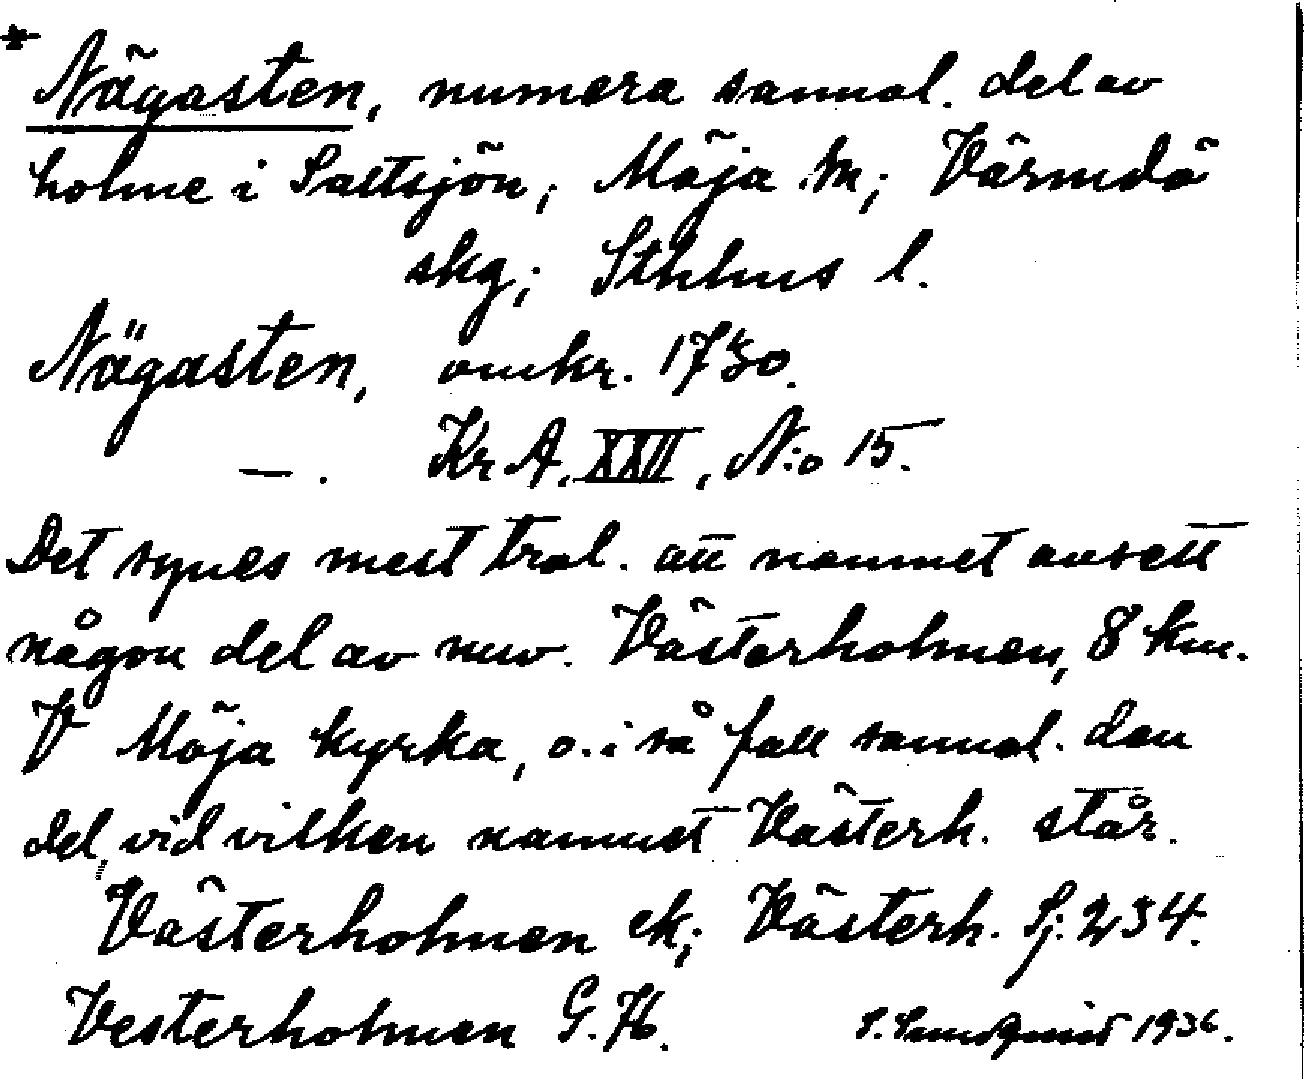 * Nägasten, numera sannol. del av
holme i Saltsjön; Möja sn; Värmdö
skg; Sthlms l.
Nägasten, omkr. 1730.
—. Kr A. XXII, N:o 15.
Det synes mest trol. att namnet avsett
någon del av nuv. Västerholmen, 8 km.
V Möja kyrka, o. i så fall sannol. den
del, vid vilken namnet Västerh. står.
Västerholmen ek; Västerh. Sj. 234.
Vesterholmen G. 76.
S. Sundqvist 1936.